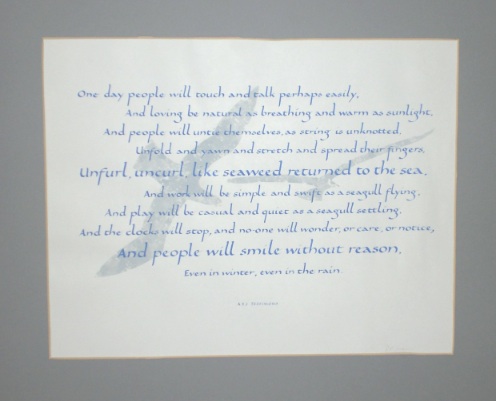 One day people will touch and talk perhaps easily,
And loving be natural as breathing and warm as sunlight,
And people will untie themselves, as string is unknotted,
Unfold and yawn and stretch and spread their fingers,
Unfurl, uncurl, like seaweed returned to the sea,
And work will be simple and swift as a seagull flying,
And play will be casual and quiet as a seagull settling,
And the clocks will stop, and no-one will wonder, or care, or notice,
And people will smile without reason,
Even in winter, even in the rain.